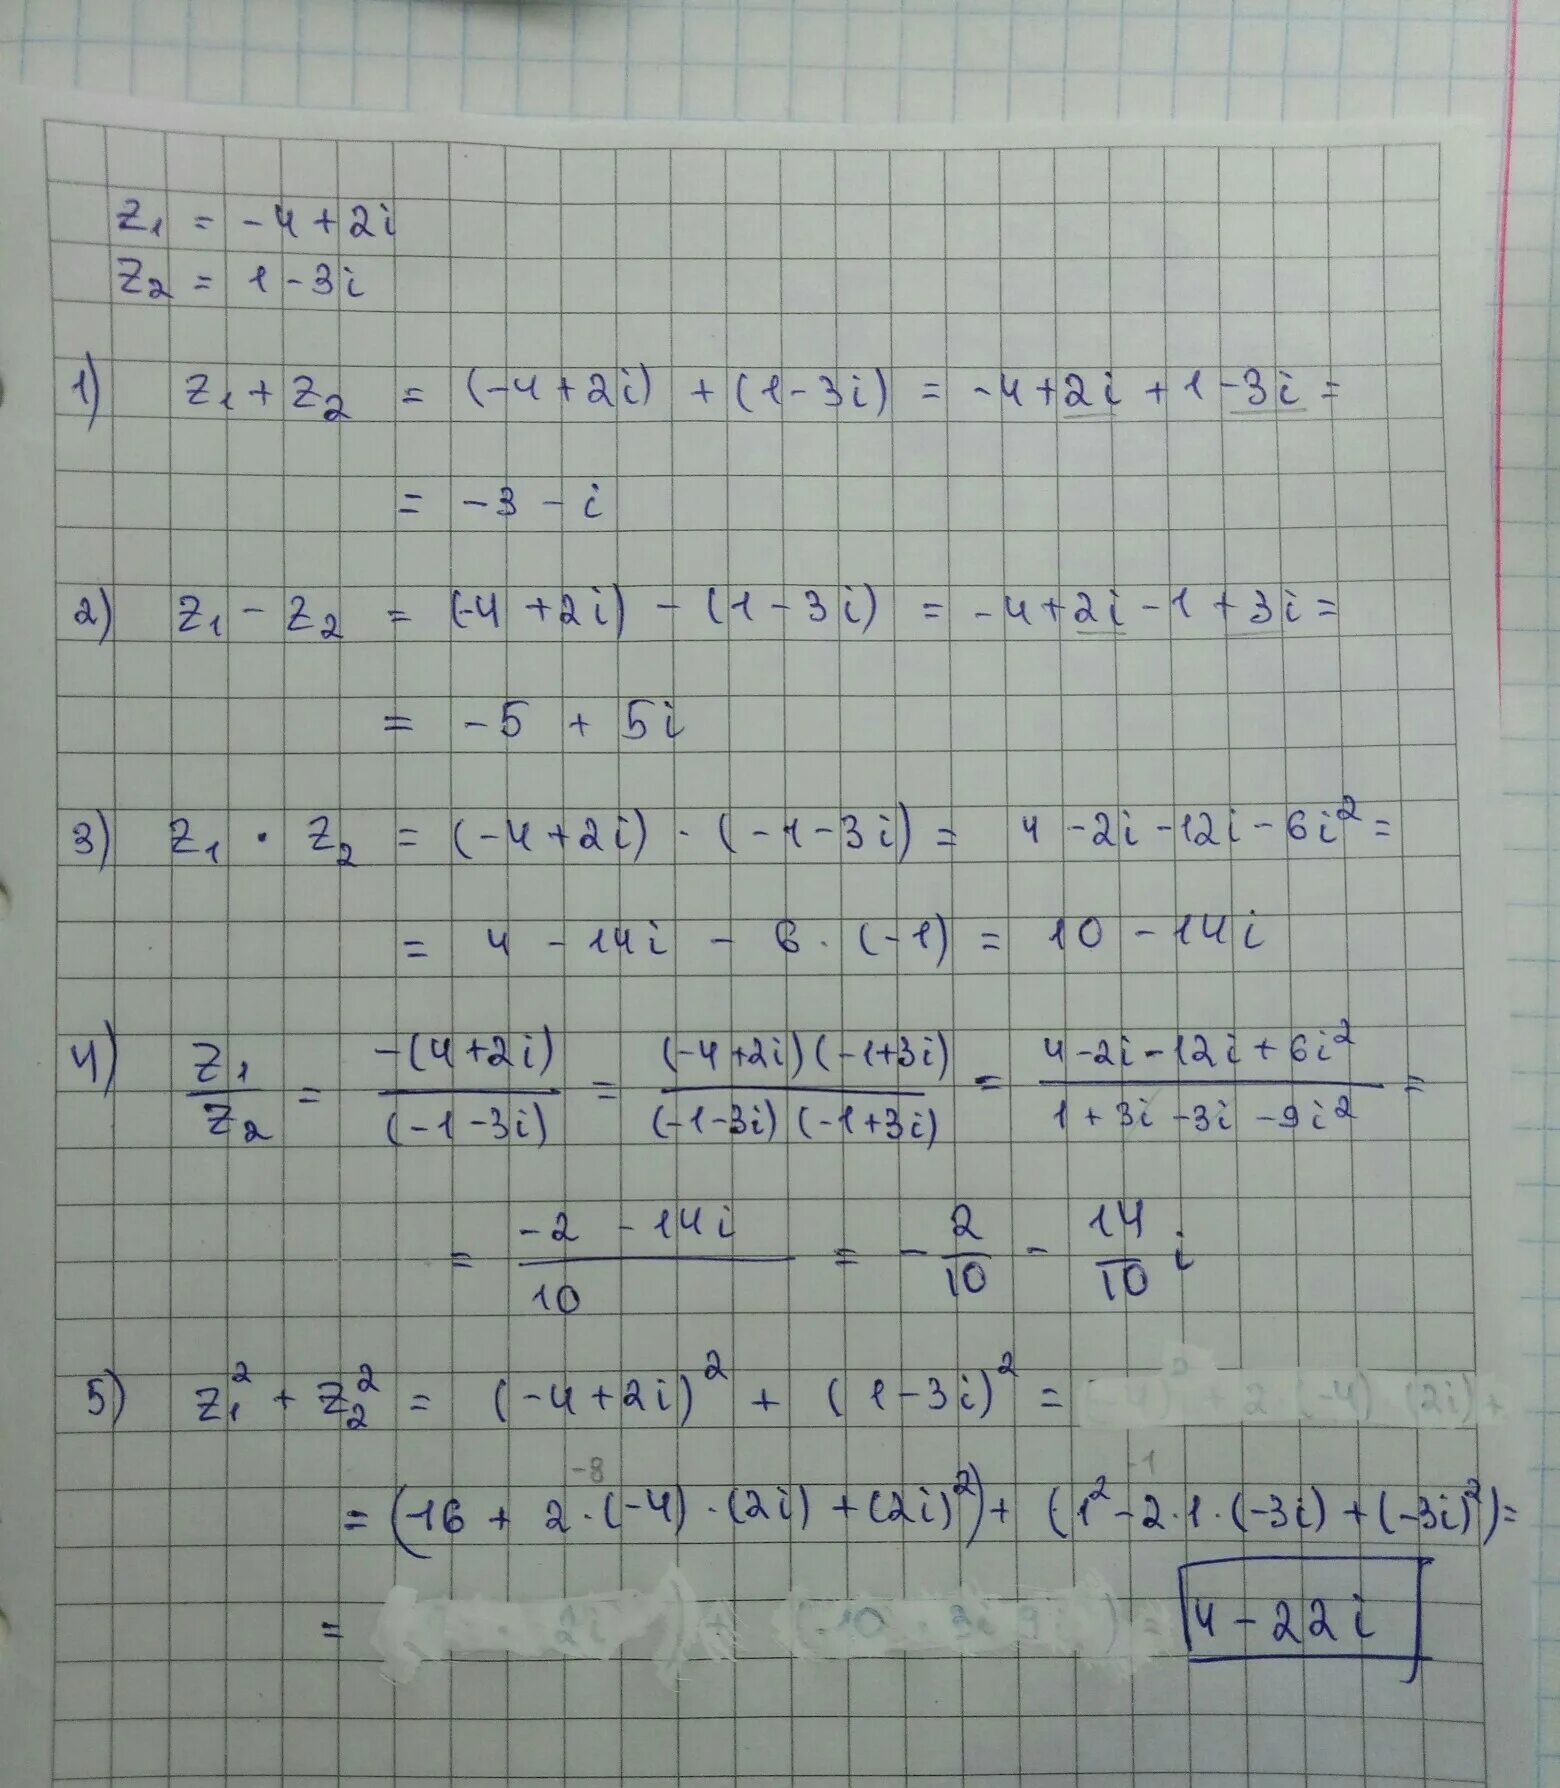 z₁ = -4+2i
z₂ = 1-3i
1) z₁+z₂ = (-4+2i) + (1-3i) = -4+2i+1-3i =
= -3-i
2) z₁-z₂ = (-4+2i) - (1-3i) = -4+2i-1+3i =
= -5 + 5i
3) z₁ · z₂ = (-4+2i) · (-1-3i) = 4-2i-12i-6i² =
= 4 - 14i - 6·(-1) = 10-14i
4) z₁/z₂ = -(4+2i)/(-1-3i) = (-4+2i)(-1+3i)/(-1-3i)(-1+3i) = 4-2i-12i+6i²/1+3i-3i-9i² =
= -2 -14i/10 = -2/10 - 14/10 i
5) z₁² + z₂² = (-4+2i)² + (1-3i)² = 2·(-4)·(2i)+
-8 -1
= (16 + 2·(-4)·(2i)+(2i)²)+ (1²-2·1·(-3i)+(-3i)²)=
= 4-22i